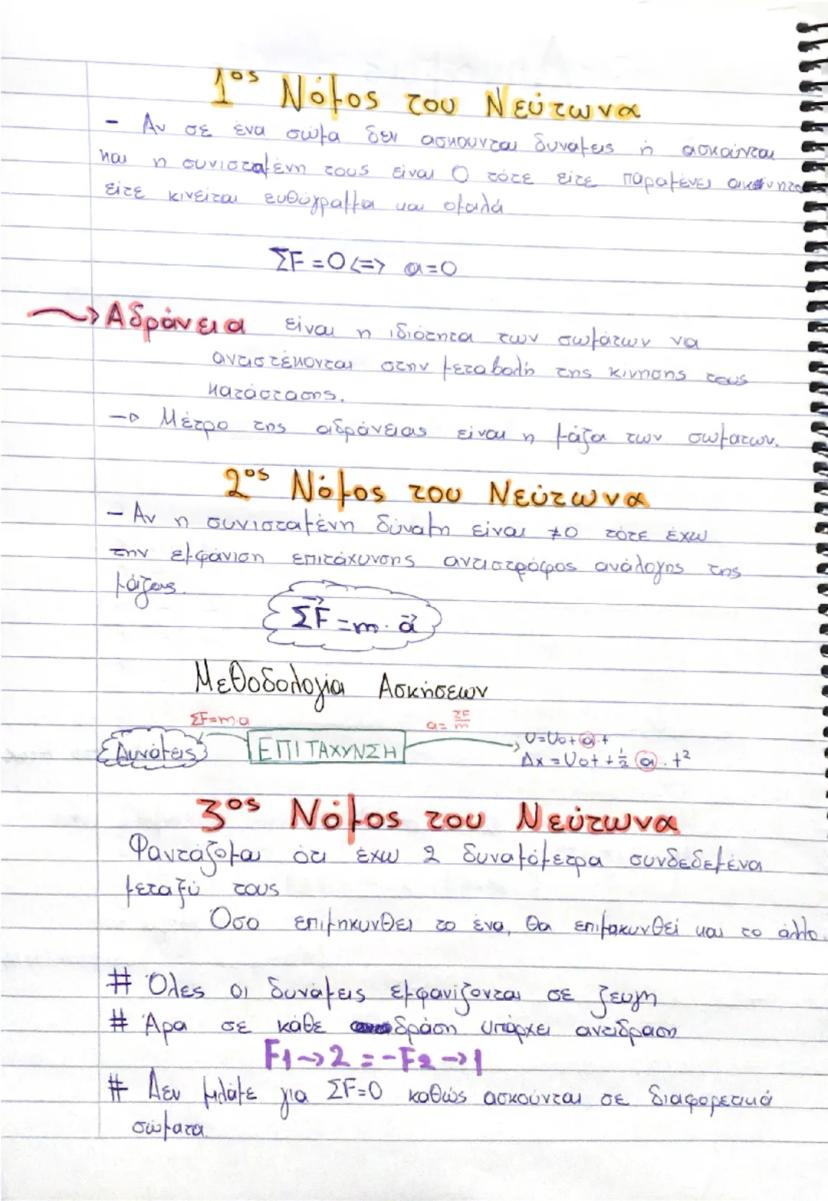 1ος Νόμος του Νεύτωνα
- Αν σε ένα σώμα δεν ασκουνται δυναμεις ή ασκούνται
και η συνισταμένη τους είναι 0 τότε είτε παραμένει ακίνητο
είτε κινείται ευθύγραμμα και ομαλά
ΣF=0<=> a=0
Αδράνεια είναι η ιδιότητα των σωμάτων να
αντιστέκονται στην μεταβολή της κινησης τους
κατάστασης.
→ Μέτρο της αδράνειας είναι η μάζα των σωματων.
2ος Νόμος του Νεύτωνα
- Αν η συνισταμένη δύναμη είναι ≠0 τότε έχω
την εμφάνιση επιτάχυνσης αντιστρόφος ανάλογης της
μάζας.
ΣF = m · a
Μεθοδολογία Ασκήσεων
Δυνάμεις ΣF=m·a ΕΠΙΤΑΧΥΝΣΗ a= ΣF/m U=Uo+a·t
Δx=Uot+½a·t²
3ος Νόμος του Νεύτωνα
Φαντάζομαι ότι έχω 2 δυναμόμετρα συνδεδεμένα
μεταξύ τους
Όσο επιμηκυνθει το ένα, θα επιμακυνθεί και το άλλο.
# Όλες οι δυνάμεις εμφανίζονται σε ζευγη
# Άρα σε κάθε δράση υπάρχει αντιδραση
F1→2=-F2→1
# Δεν μιλάμε για ΣF=0 καθώς ασκούνται σε διαφορετικά
σώματα.